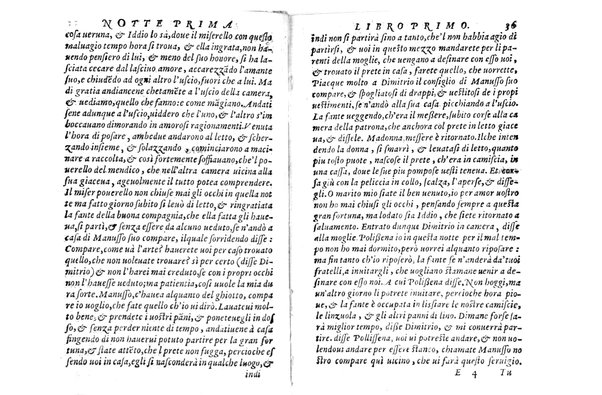 NOTTE PRIMA
cosa ueruna, & Iddio lo sà, doue il misarello con questo
maluagio tempo hora si troua, & ella ingrata, non ha-
uendo pensiero di lui, & meno del suo honore, si ha la-
sciata cecare dal lasciuo amore, accarezzãdo l'amante
suo, e chiudẽdo ad ogni altro l'uscio, fuori che a lui. Ma
di gratia andiancene chetamẽte a l'uscio della camera,
& uediamo, quello che fanno: e come mãgiano. Andati
sene adunque a l'uscio, uiddero che l'uno, & l'altro s'im
boccauano dimorando in amorosi ragionamenti. Venuta
l'hora di posare, ambedue andarono al letto, & scher-
zando insieme, & solazzando, cominciarono a macina
re a raccolta, & così fortemente soffiauano, che'l po-
uerello del mendico, che nell'altra camera uicina alla
sua giaceua, ageuolmente il tutto potea comprendere.
Il miser pouerello non chiuse mai gli occhi in quella not
te ma fatto giorno subito si leuò di letto, & ringratiata
la fante della buona compagnia, che fatta gli haue-
ua, si partì, & senza essere da alcuno ueduto, se n'andò a
casa di Manusso suo compare, ilquale sorridendo disse:
Compare, come uà l'arte? hauerete uoi per caso trouato
quello, che non uoleuate trouare? sì per certo (disse Di-
mitrio) & non l'harei mai creduto, se con i propri occhi
non l'hauesse ueduto; ma patientia, così uuole la mia du
ra sorte. Manusso, c'hauea alquanto del ghiotto, compa
re io uoglio, che fate quello ch'io ui dirò. Lauateui mol-
to bene, & prendete i uostri pãni, & poneteuegli in dos-
so, & senza perder niente di tempo, andateuene a casa
fingendo di non hauerui potuto partir per la gran for
tuna, & siate attento, che l prete non fugga, percioche es
sendo uoi in casa, egli si nasconderà in qualche luogo, &
indi
LIBRO PRIMO. 36
indi non si partirà sino a tanto, che'l non habbia agio di
partirsi, & uoi in questo mezzo mandarete per li pa-
renti della moglie, che uengano a desinare con esso uoi, &
& trouato il prete in casa, farete quello, che uorrete,
Piacque molto a Dimitrio il consiglio di Manusso suo
compare, & spogliatosi di drappi, & uestitosi de i propi
uestimenti, se n'andò alla sua casa picchiando a l'uscio.
La fante ueggendo, ch'era il messere, subito corse alla ca
mera della patrona, che anchora col prete in letto giace
ua, & dissele: Madonna. messere è ritornato. Ilche inten
dendo la donna, si smarrì, & leuatasi di letto, quanto
più tosto puote, nascose il prete, ch'era in camiscia, in
una cassa, doue le sue più pompose uesti teneua. Et cor-
sa giù con la pelliccia in collo, scalza, l'aperse, & disse-
gli. O marito mio siate il ben uenuto, io per amor uo-
stro non ho mai chiusi gli occhi, pensando sempre a questa
gran fortuna, ma lodato sia Iddio, che siete ritornato a
saluamento. Entrato adunque Dimitrio in camera, disse
alla moglie Polissena io in questa notte per il mal tempo
non ho mai dormito, però uorrei alquanto riposare: ma
fin a tanto ch'io riposerò, la fante se n'anderà da'tuoi
fratelli, a inuitargli, che uogliano stamane uenir a de-
sinare con esso noi. A cui Polissena disse. Non hoggi, ma
un'altro giorno li potete inuitare, percioche hora pio-
ue, & la fante è occupata in lissiare le nostre camiscie,
le linzuola, & gli altri panni di lino. Dimane forse fa-
rà migliore tempo, disse Dimitrio, & mi conuerrà par-
tire. disse Pollissena, uoi potreste andare, & non uo-
lendoui andar per essere stanco, chiamate Manusso no
stro compare qui uicino, che ui farà questo seruigio.
E 4 Tu